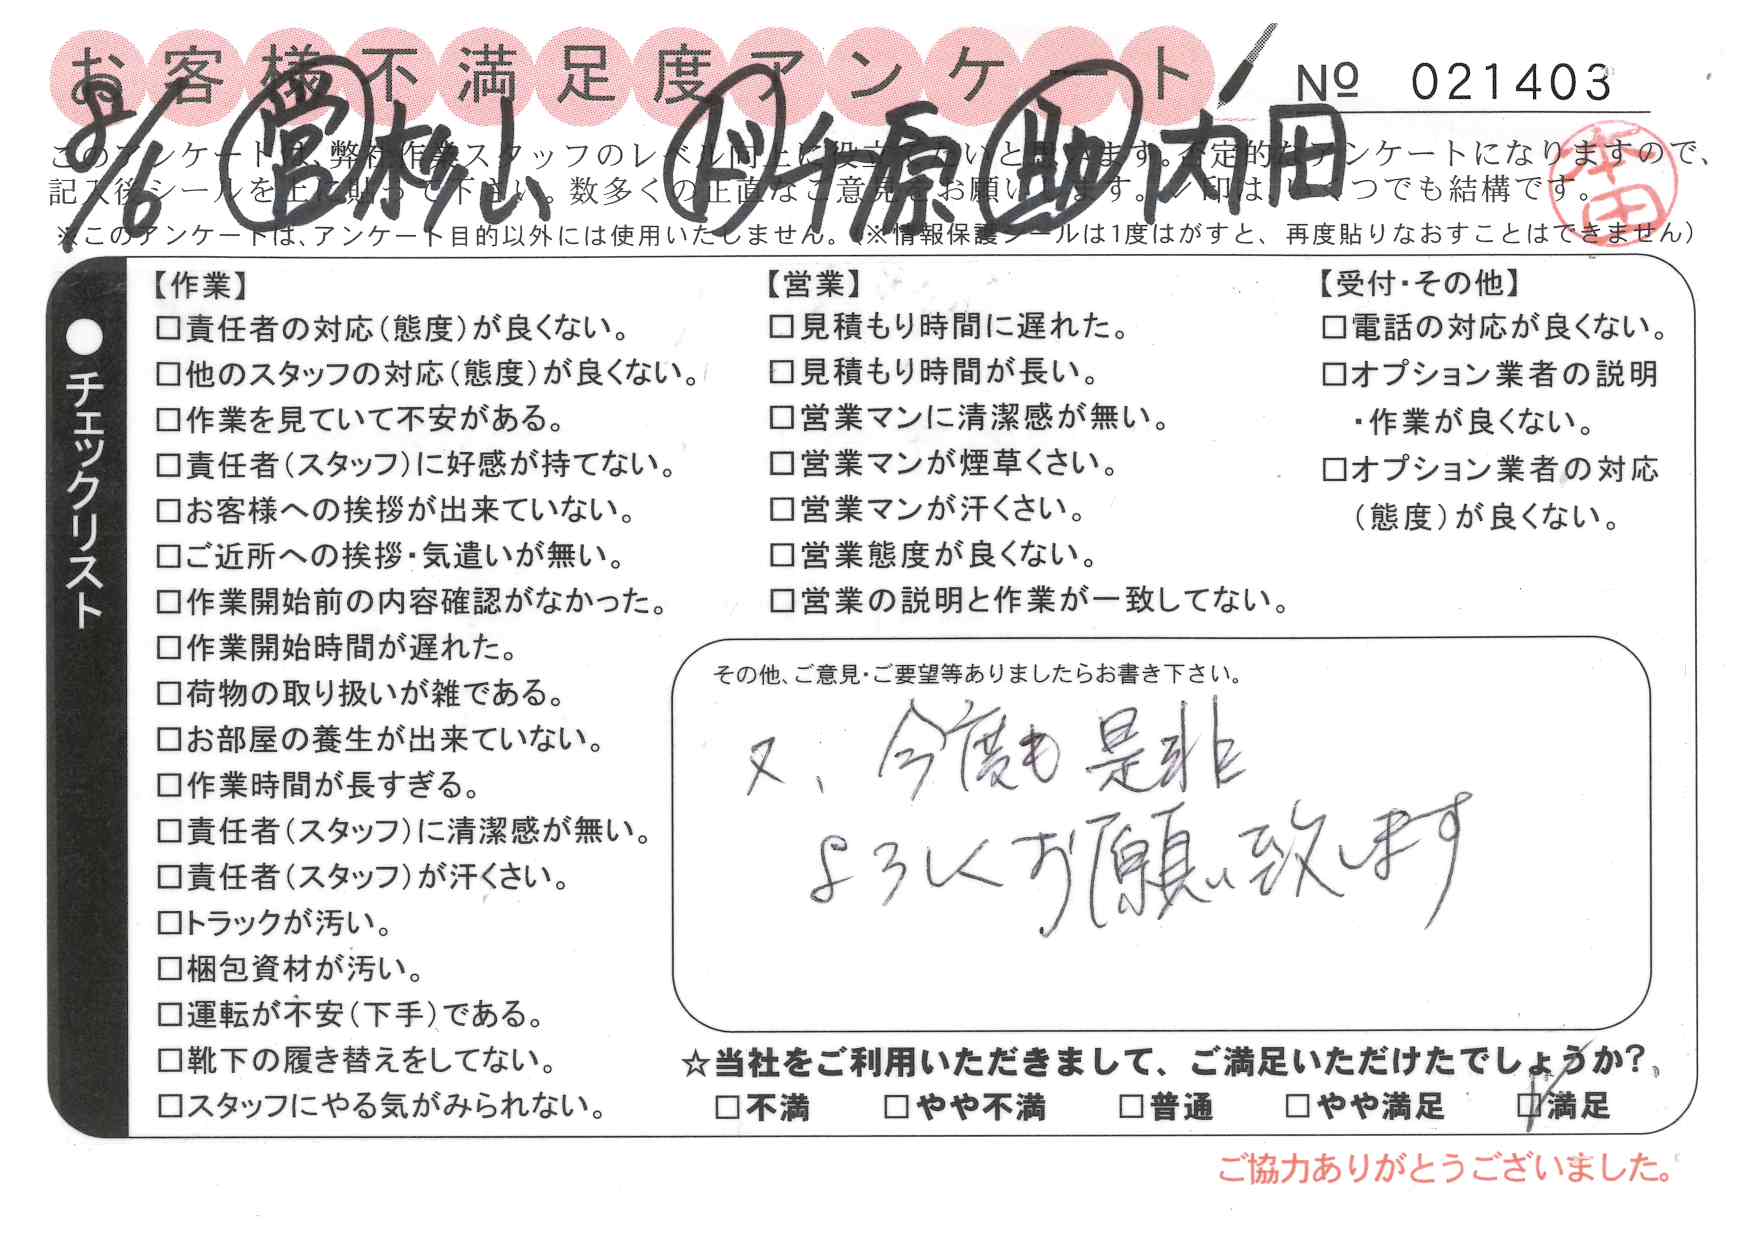 お客様不満足度アンケート
No 021403
2/6 営 杉山 ド 千原 助 内田
本田
このアンケートは、弊社作業スタッフのレベル向上に役立てたいと思います。否定的なアンケートになりますので、
記入後シールを上に貼って下さい。数多くの正直なご意見をお願いします。✓印は、いくつでも結構です。
※このアンケートは、アンケート目的以外には使用いたしません。(※情報保護シールは1度はがすと、再度貼りなおすことはできません)
●チェックリスト
【作業】
□責任者の対応(態度)が良くない。
□他のスタッフの対応(態度)が良くない。
□作業を見ていて不安がある。
□責任者(スタッフ)に好感が持てない。
□お客様への挨拶が出来ていない。
□ご近所への挨拶・気遣いが無い。
□作業開始前の内容確認がなかった。
□作業開始時間が遅れた。
□荷物の取り扱いが雑である。
□お部屋の養生が出来ていない。
□作業時間が長すぎる。
□責任者(スタッフ)に清潔感が無い。
□責任者(スタッフ)が汗くさい。
□トラックが汚い。
□梱包資材が汚い。
□運転が不安(下手)である。
□靴下の履き替えをしてない。
□スタッフにやる気がみられない。
【営業】
□見積もり時間に遅れた。
□見積もり時間が長い。
□営業マンに清潔感が無い。
□営業マンが煙草くさい。
□営業マンが汗くさい。
□営業態度が良くない。
□営業の説明と作業が一致してない。
【受付・その他】
□電話の対応が良くない。
□オプション業者の説明
・作業が良くない。
□オプション業者の対応
(態度)が良くない。
その他、ご意見・ご要望等ありましたらお書き下さい。
又、今度も是非
よろしくお願い致します
☆当社をご利用いただきまして、ご満足いただけたでしょうか?
□不満 □やや不満 □普通 □やや満足 ☑満足
ご協力ありがとうございました。